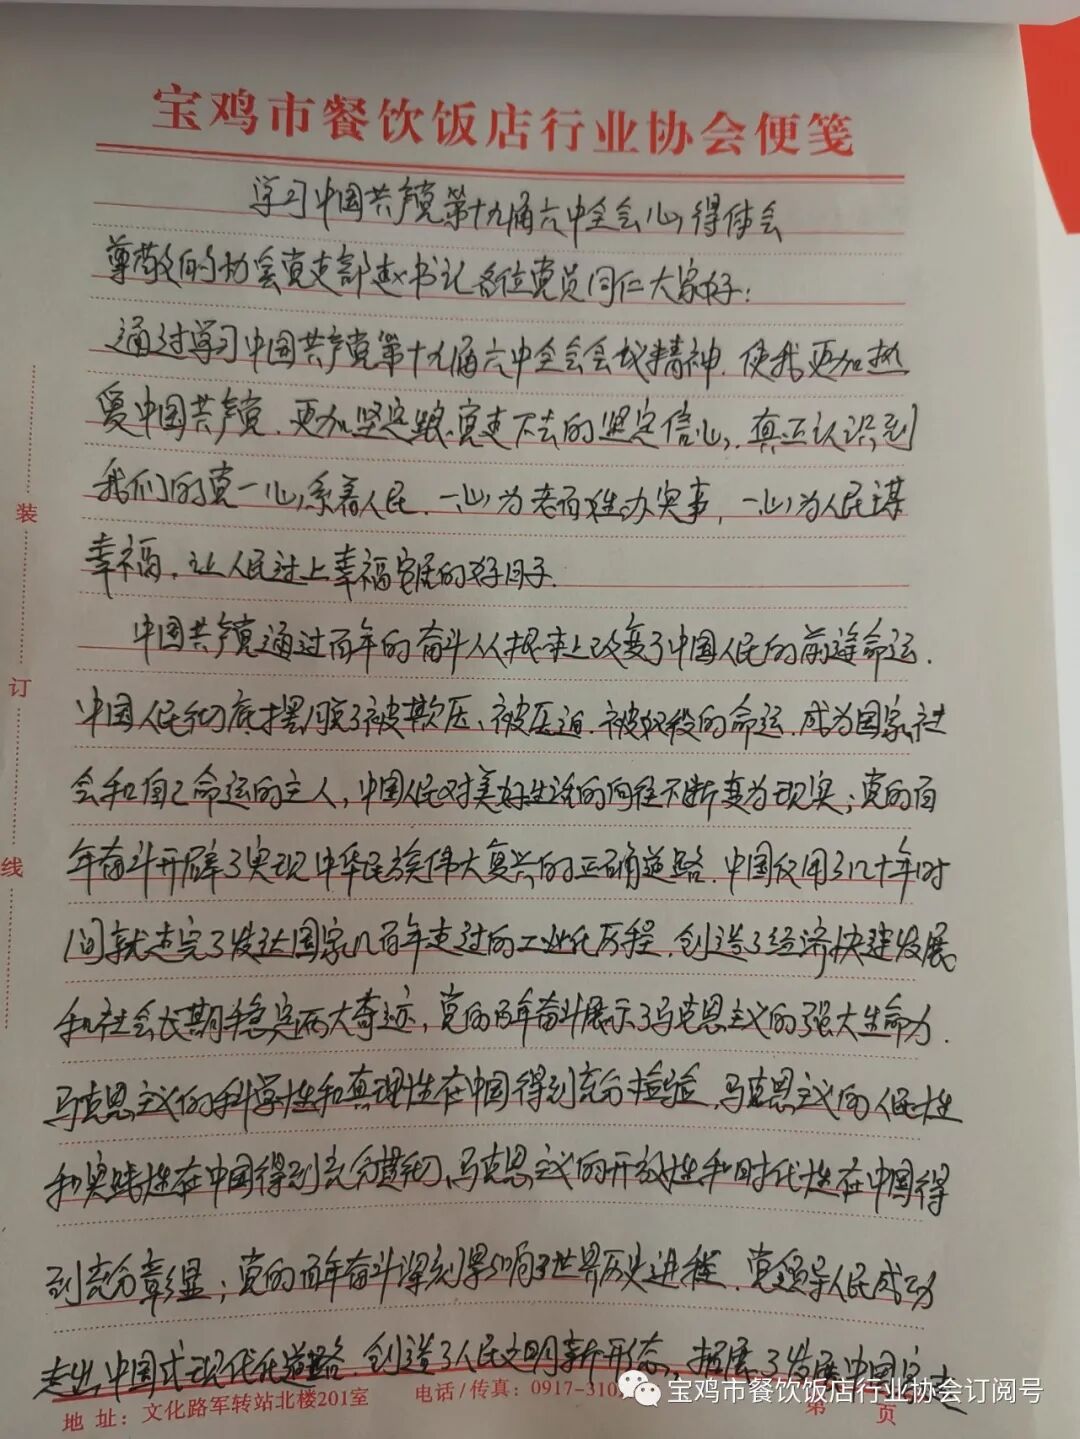 宝鸡市餐饮饭店行业协会便笺
学习中国共产党第十九届六中全会心得体会
尊敬的协会党支部赵书记各位党员同仁大家好:
通过学习中国共产党第十九届六中全会会议精神.使我更加热
爱中国共产党.更加坚定跟党走下去的坚定信心,真正认识到
我们的党一心系着人民.一心为老百姓办实事,一心为人民谋
幸福,让人民过上幸福安居的好日子.
中国共产党通过百年的奋斗从根本上改变了中国人民的前途命运.
中国人民彻底摆脱了被欺压、被压迫.被奴役的命运.成为国家,社
会和自己命运的主人,中国人民对美好生活的向往不断变为现实;党的百
年奋斗开辟了实现中华民族伟大复兴的正确道路.中国仅用了几十年时
间就走完了发达国家几百年走过的工业化历程.创造了经济快速发展
和社会长期稳定两大奇迹,党的百年奋斗展示了马克思主义的强大生命力.
马克思主义的科学性和真理性在中国得到充分检验.马克思主义的人民性
和实践性在中国得到充分贯彻,马克思主义的开放性和时代性在中国得
到充分彰显;党的百年奋斗深刻影响了世界历史进程.党领导人民成功
走出中国式现代化道路.创造了人民文明新形态,拓展了发展中国家
装
订
线
地 址:文化路军转站北楼201室 电话/传真:0917-310
第 页
宝鸡市餐饮饭店行业协会订阅号